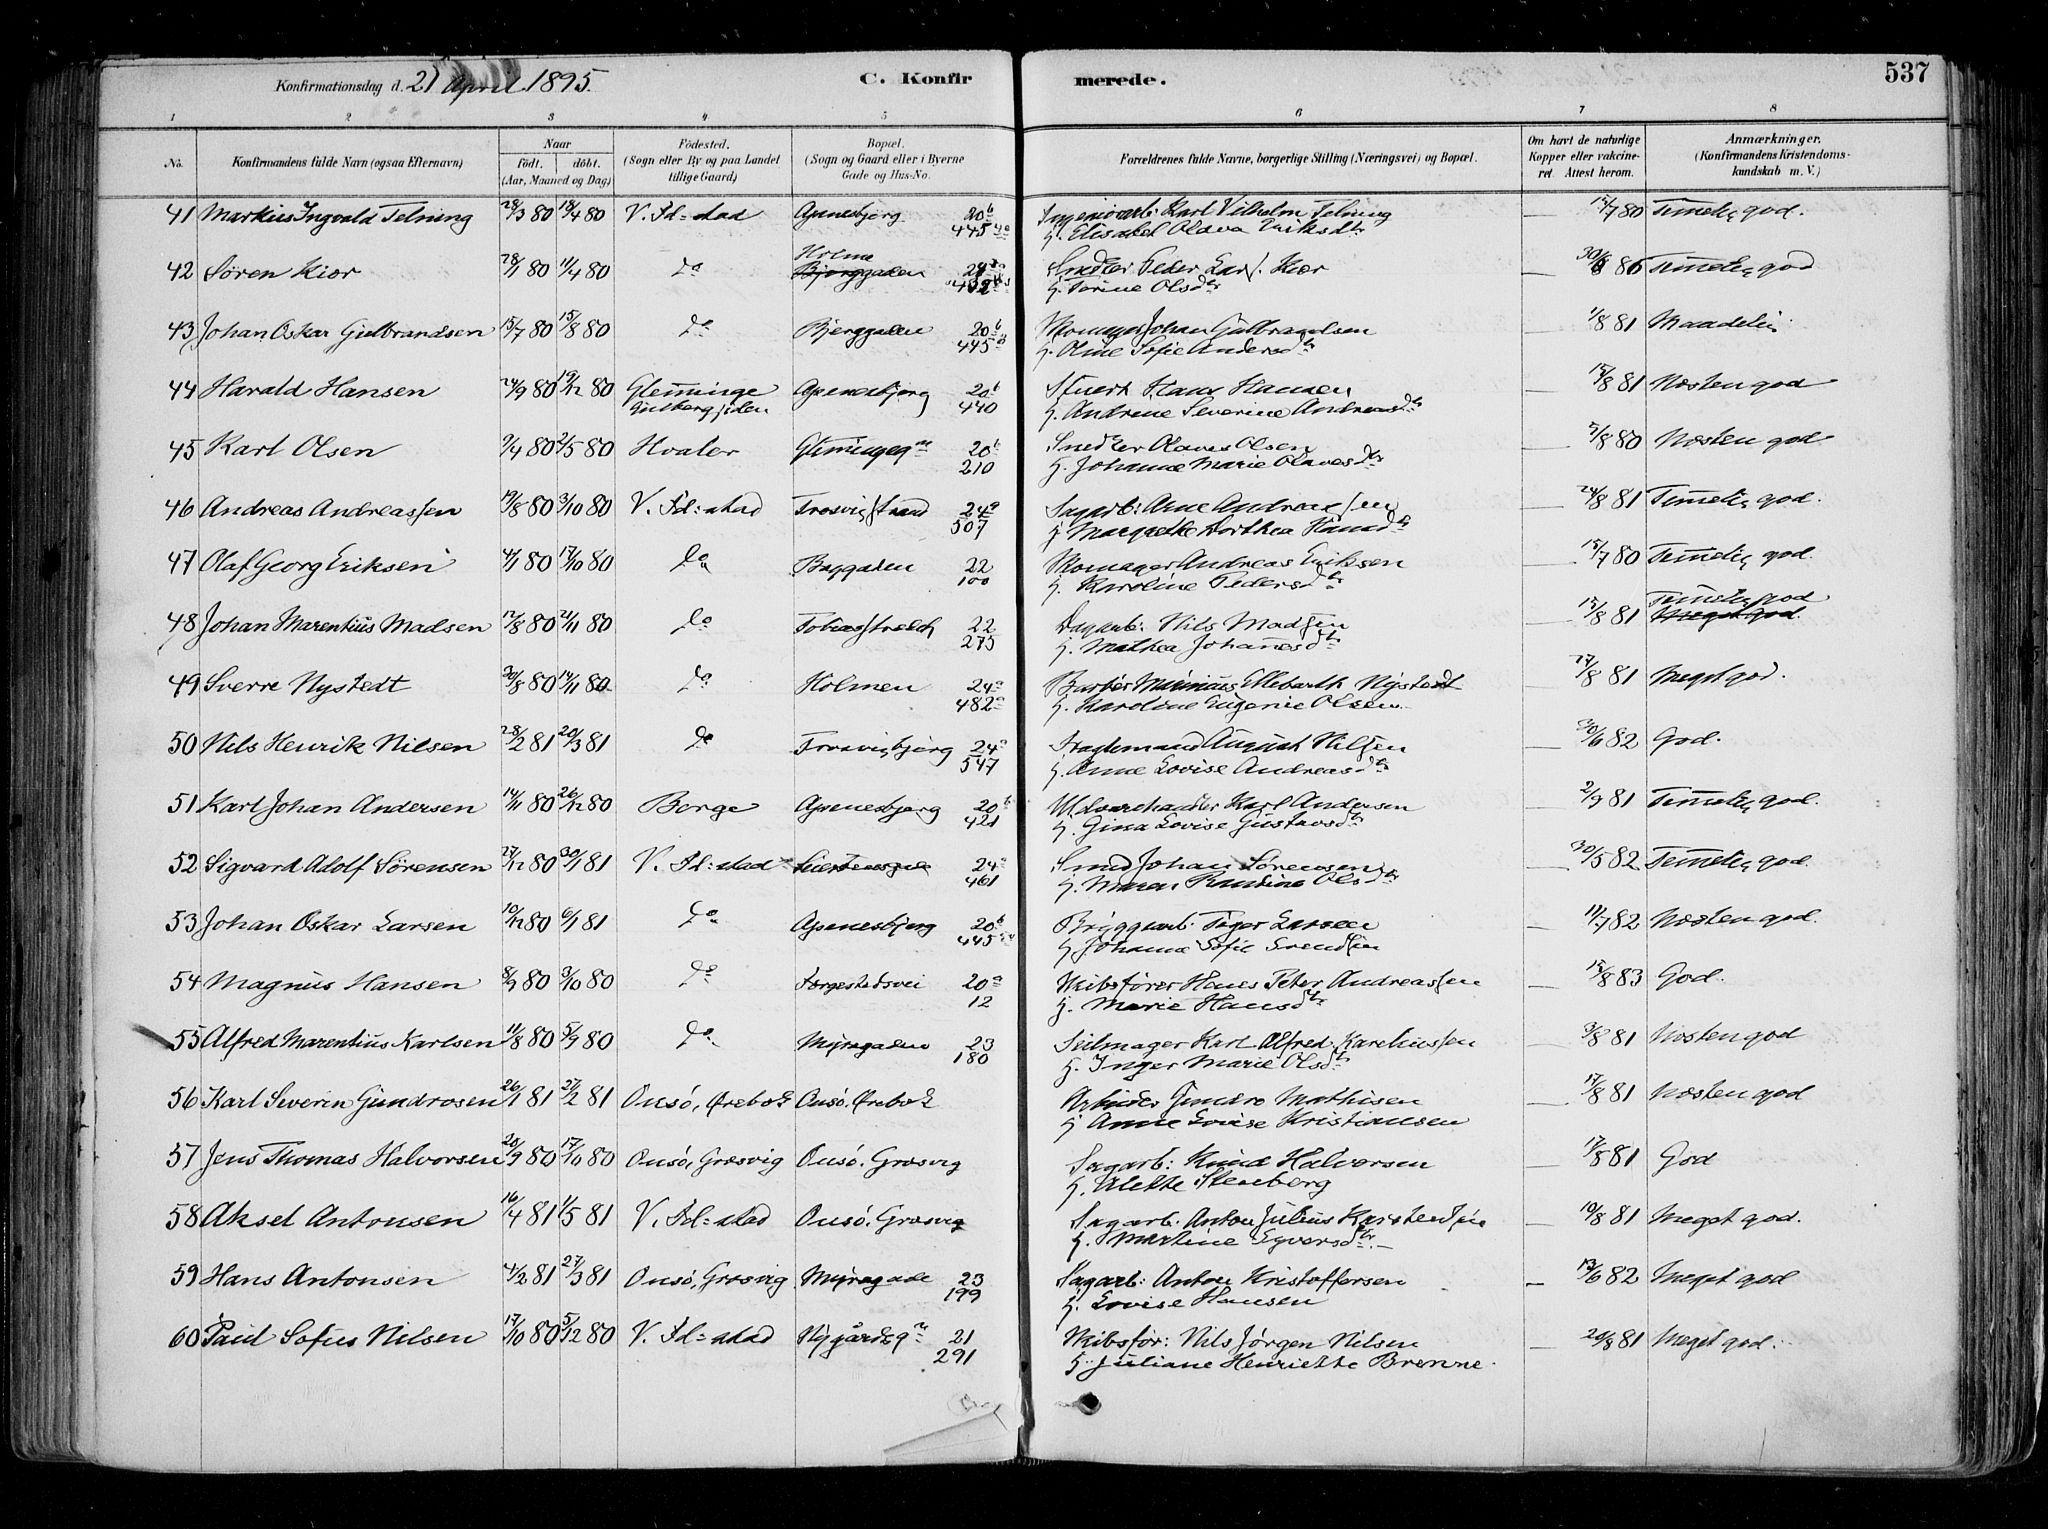 Konfirmationsdag d. 21 April 1895. C. Konfirmerede. 537
1 2 3 4 5 6 7 8
No. Konfirmandens fulde Navn (ogsaa Efternavn) Naar födt. döbt. (Aar, Maaned og Dag) Födested. (Sogn eller By og paa Landet tillige Gaard) Bopæl. (Sogn og Gaard eller i Byerne Gade og Hus-No. Forældrenes fulde Navne, borgerlige Stilling (Næringsvei) og Bopæl. Om havt de naturlige Kopper eller vakcineret. Attest herom. Anmærkninger. (Konfirmandens Kristendomskundskab m. V.)
41 Markus Ingvald Telning 28/3 80 18/4 80 V. Fd:stad Apenesbjerg 20b Karl Vilhelm Telning 15/7 80 Temelig god.
445 H. Elisabet Olava Eriksdtr
Holme
42 Sören Kiær 28/1 80 11/4 80 do Bjerggaden 24a Peder Lars. Kiær 86 Temelig god
H. Torine Olsdtr
43 Johan Oskar Gulbrandsen 15/7 80 15/8 80 do Bjerggaden 20b Skomager Johan Gulbrandsen 1/8 81 Maadelig
445 H. Oline Sofie Andersdtr
44 Harald Hansen 24/9 80 19/12 80 Glemminge Apenesbjerg 20b Stuert Hans Hansen 15/8 81 Næsten god
440 H. Andrine Severine Andreasdtr
45 Karl Olsen 9/4 80 2/5 80 Hvaler Glemingegn 20b Olaves Olsen 5/8 80 Næsten god
210 H. Johanne Marie Olavesdtr
46 Andreas Andreassen 19/8 80 3/10 80 V. Fd:stad Trosvigstrand 24a Sagarb: Arne Andreassen 24/8 81 Temelig god.
507 H. Margrethe Dorthea Hansdtr
47 Olaf Georg Eriksen 4/1 80 17/10 80 do Baggaden 22 Skomager Andreas Eriksen 15/7 80 Temelig god.
100 H. Karoline Pedersdtr
Temelig god
48 Johan Marentius Madsen 12/8 80 21/11 80 do 22 Dagarb: Nils Madsen 15/8 81 Meget god.
275 H. Mathea Johannesdtr
49 Sverre Nystedt 30/8 80 14/11 80 do Holmen 24a Barber Marinius Ellebarth Nystedt 17/8 81 Meget god.
482a H. Karoline Eugenie Olsen
50 Nils Henrik Nilsen 28/2 81 20/3 81 do Trosvigbjerg 24a August Nilsen 30/6 82 God.
547 H. Anne Lovise Andreasdtr
51 Karl Johan Andersen 14/11 80 26/12 80 Borge Apenesbjerg 20b Karl Andersen 2/9 81 Temelig god.
421 H. Gina Lovise Gustavsdtr
52 Sigvard Adolf Sörensen 27/12 80 30/1 81 V. Fd:stad 24a Smed Johan Sörensen 30/5 82 Temelig god.
461 H. Maren Olsdtr
53 Johan Oskar Larsen 10/12 80 6/1 81 do Apenesbjerg 20b Bryggearb: Larsen 11/7 82 Næsten god.
445 H. Johanne Sofie Svendsen
54 Magnus Hansen 8/9 80 3/10 80 do Færgestedsvei 20a Skibsförer Hans Peter Andreassen 15/8 83 God.
12 H. Marie Hansdtr
55 Alfred Marentius Karlsen 11/8 80 5/9 80 do Myragaden 23 Seilmager Karl Alfred Kareliussen 3/8 81 Næsten god
180 H. Inger Marie Olsdtr
56 Karl Severin Gundrosen 26/1 81 27/2 81 Onsö, Örebæk Onsö. Örebæk Arbeider Mathisen 17/8 81 Næsten god
H Anne Lovise Kristiansen
57 Jens Thomas Halvorsen 20/9 80 17/10 80 Onsö, Græsvig Onsö. Græsvig Sagarb: Knud Halvorsen 17/8 81 God
H. Alette Stenberg
58 Aksel Antonsen 16/4 81 1/5 81 V. Fd:stad Onsö. Græsvig Sagarb. Anton Julius Karstensen 10/8 81 Meget god.
H. Martine Syversdtr
59 Hans Antonsen 4/2 81 27/3 81 Onsö, Græsvig Myragade 23 Sagarb: Anton Kristoffersen 13/6 82 Meget god
199 H. Lovise Hansen
60 Paul Sofus Nilsen 17/10 80 5/12 80 V. Fd:stad Nygårdsgn 21 Skibsför: Nils Jörgen Nilsen 20/8 81 Meget god.
291 H. Juliane Henriette Brenne.